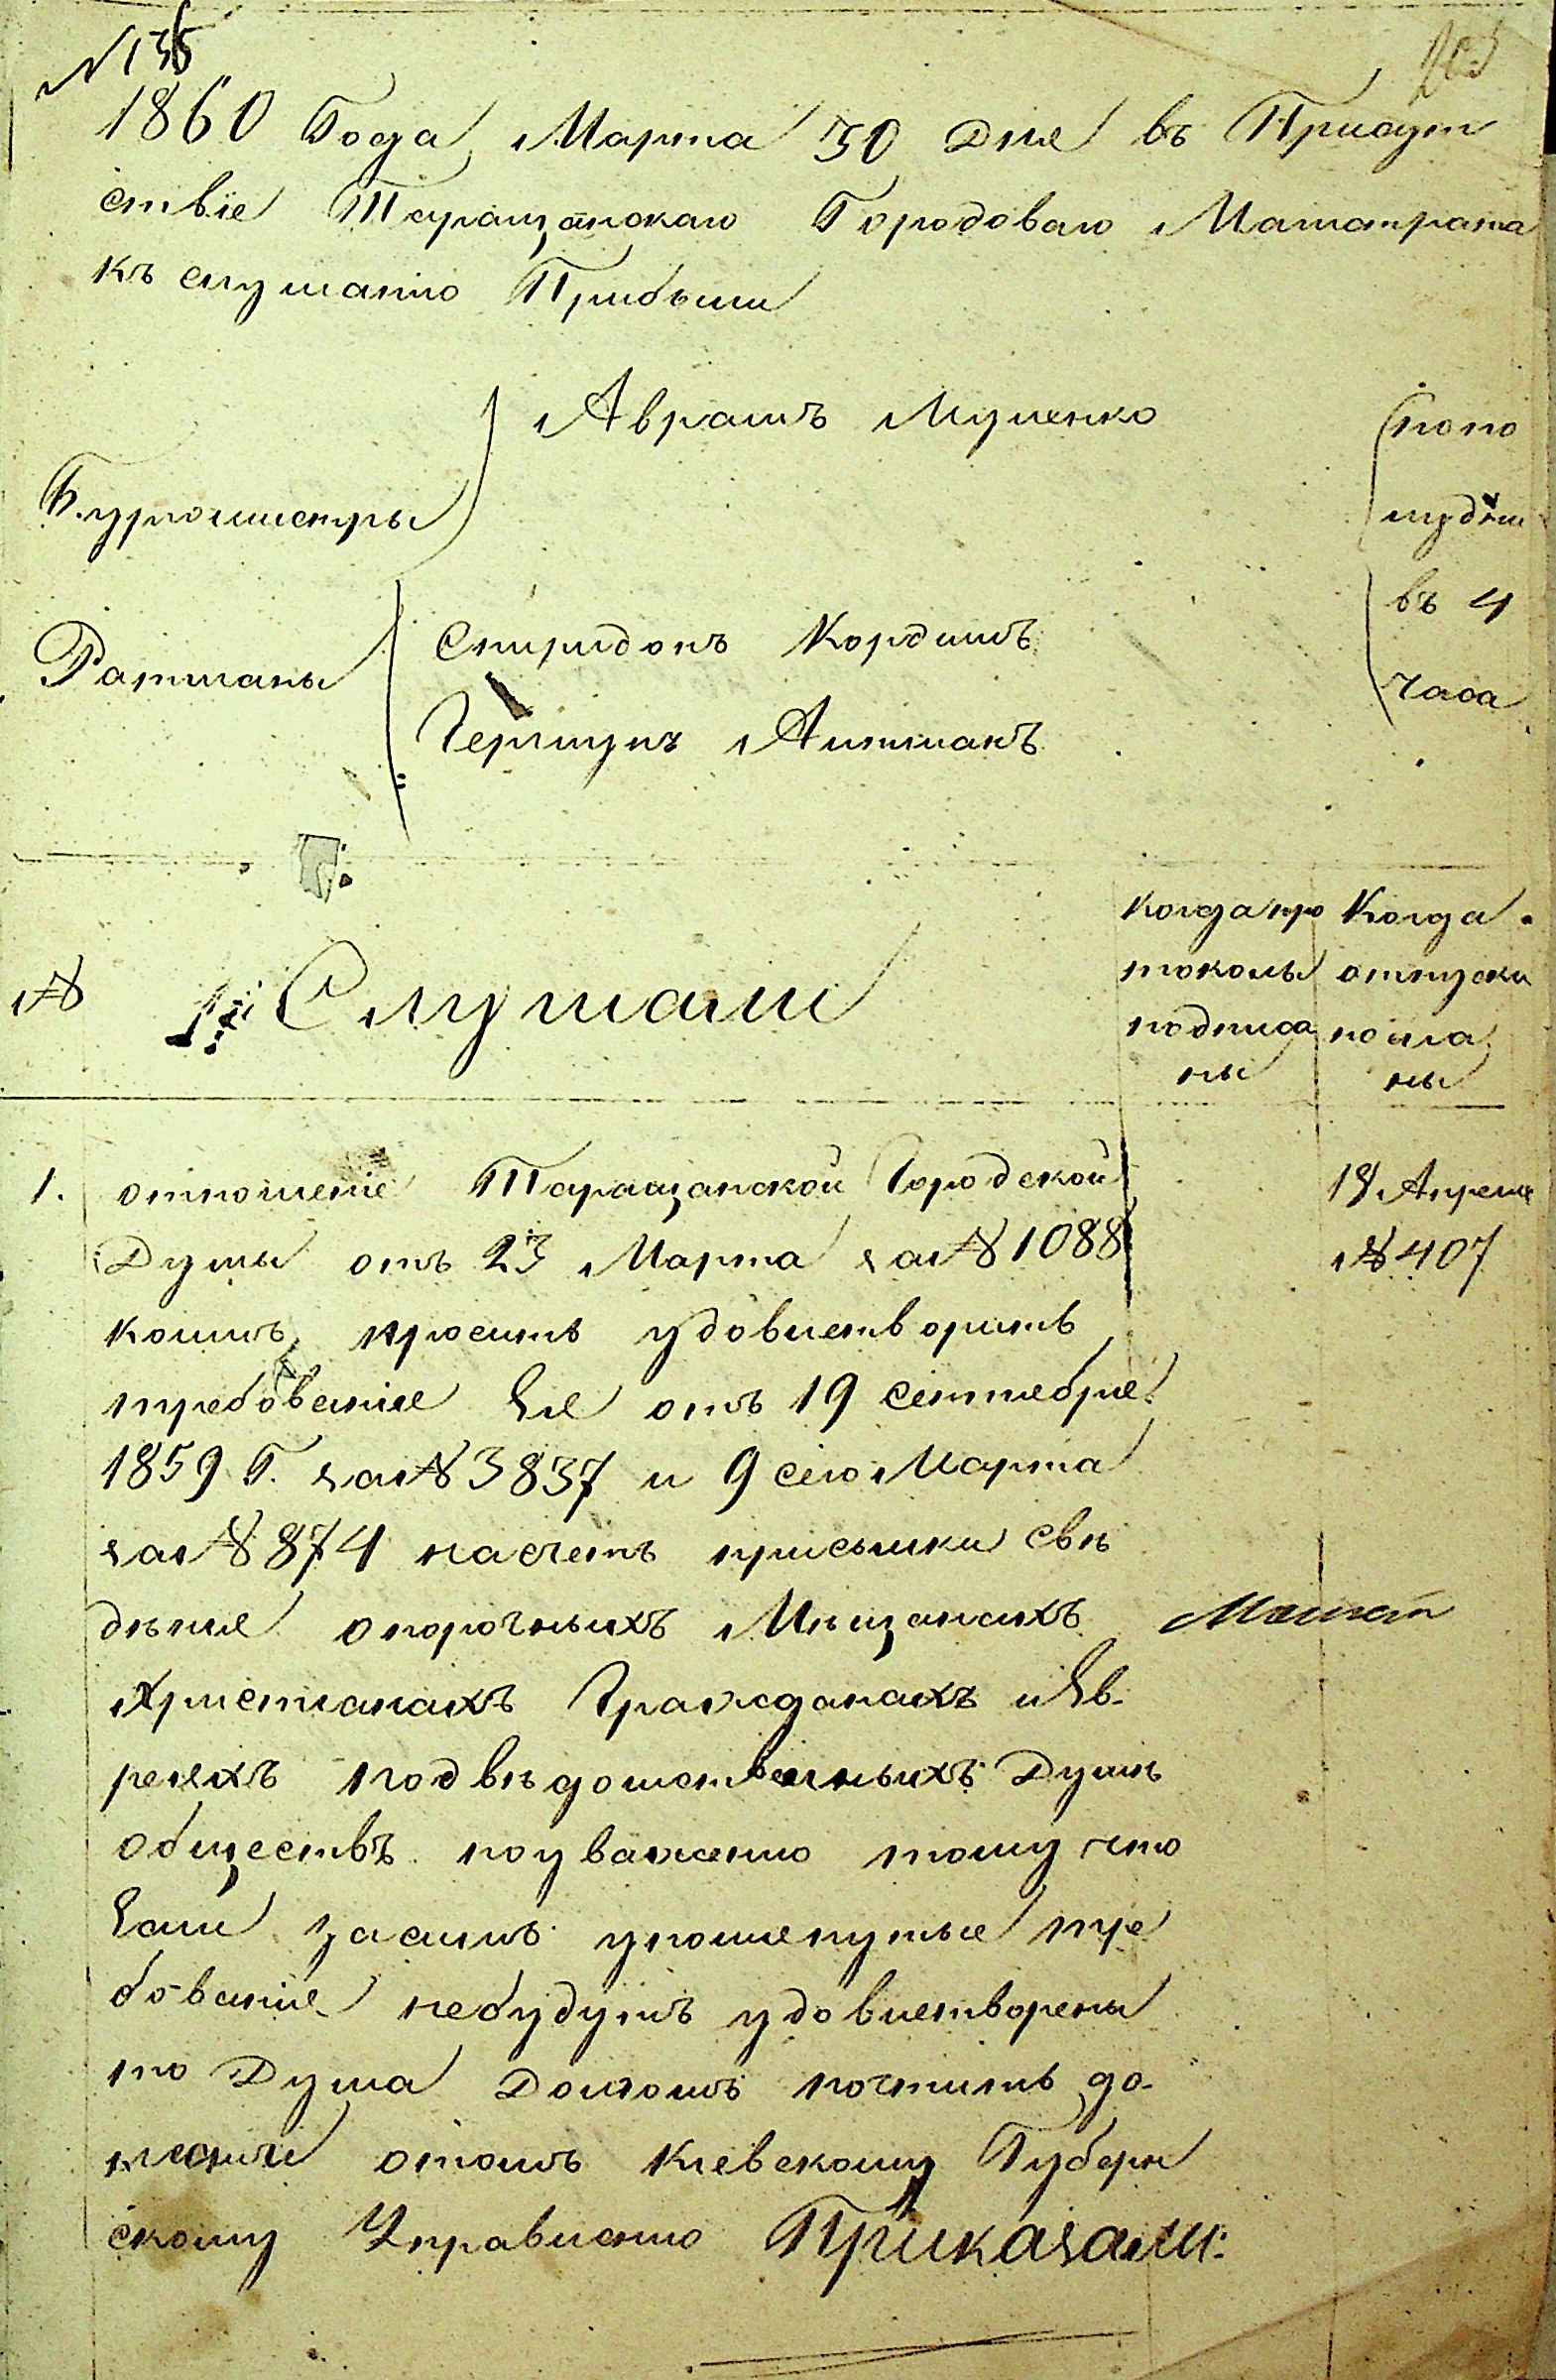 № 135
1860 Года Марта 30 Дня въ Присут
ствіе Таращанскаго Городоваго Магистрата
къ слушанію Прибыли
Аврамъ
Бургомистры
по по
лудни
въ 4
часа
Ратманы
Спиридонъ Кордишъ
Гершунъ
№ Слушали
когда про
токолы
подписа
ны
Когда
отпуски
посла
ны
1. отношеніе Таращанской Городской
Думы отъ 23 Марта за № 1088
коимъ проситъ удовлетворить
требованіе Ея отъ 19 сентебря
1859 Г. за № 3837 и 9 сего Марта
за № 874 насчетъ присылки свѣ
дѣніе опорочныхъ Мѣщанахъ
Христианахъ Гражданахъ и Ев-
реяхъ подвѣдомственныхъ Думѣ
обществъ поуваженію тому что
Если засимъ упомянутые тре
бованіе небудутъ удовлетворены
то Дума Долгомъ почтитъ до-
нести отомъ Киевскому Губерн
скому Управленію Приказали:
18 Апреля
№ 407